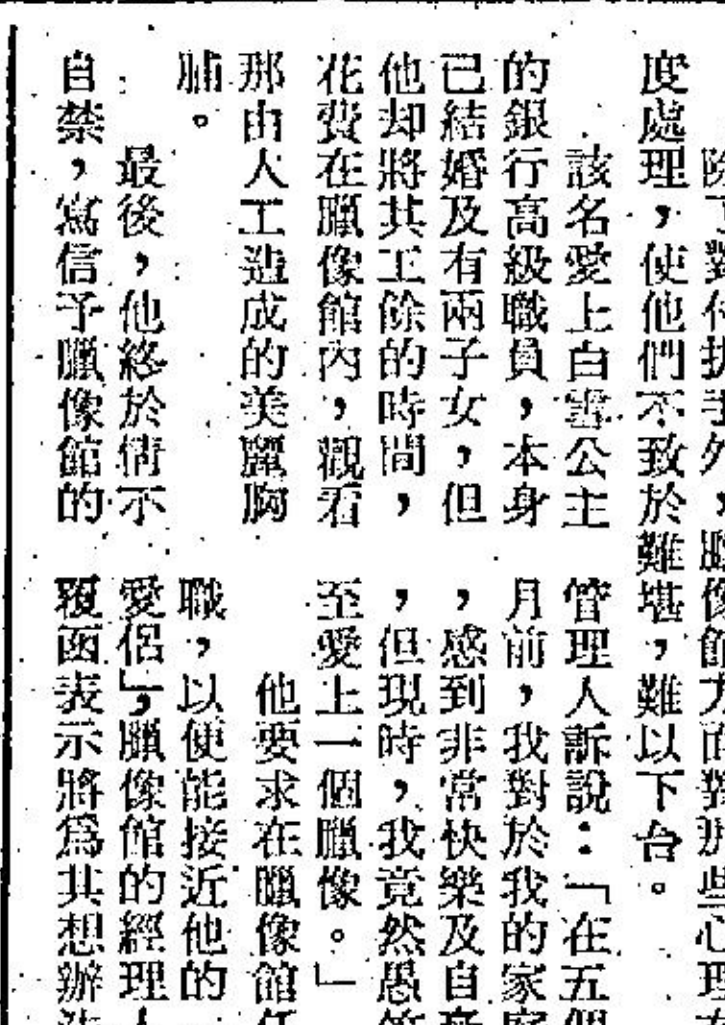 除了對付扒手外，臘像館方面對那些心理
度處理，使他們不致於難堪，難以下台。
該名愛上白雪公主
的銀行高級職員，本身
已結婚及有兩子女，但
他却將其工餘的時間，
花費在臘像館內，觀看
那由人工造成的美麗胸
脯。
最後，他終於情不
自禁，寫信予臘像館的
管理人訴說：「在五個
月前，我對於我的家庭
，感到非常快樂及自
，但現時，我竟然愚
至愛上一個臘像。」
他要求在臘像館任
職，以便能接近他的「
愛侶」，臘像館的經理人
覆函表示將爲其想辦法